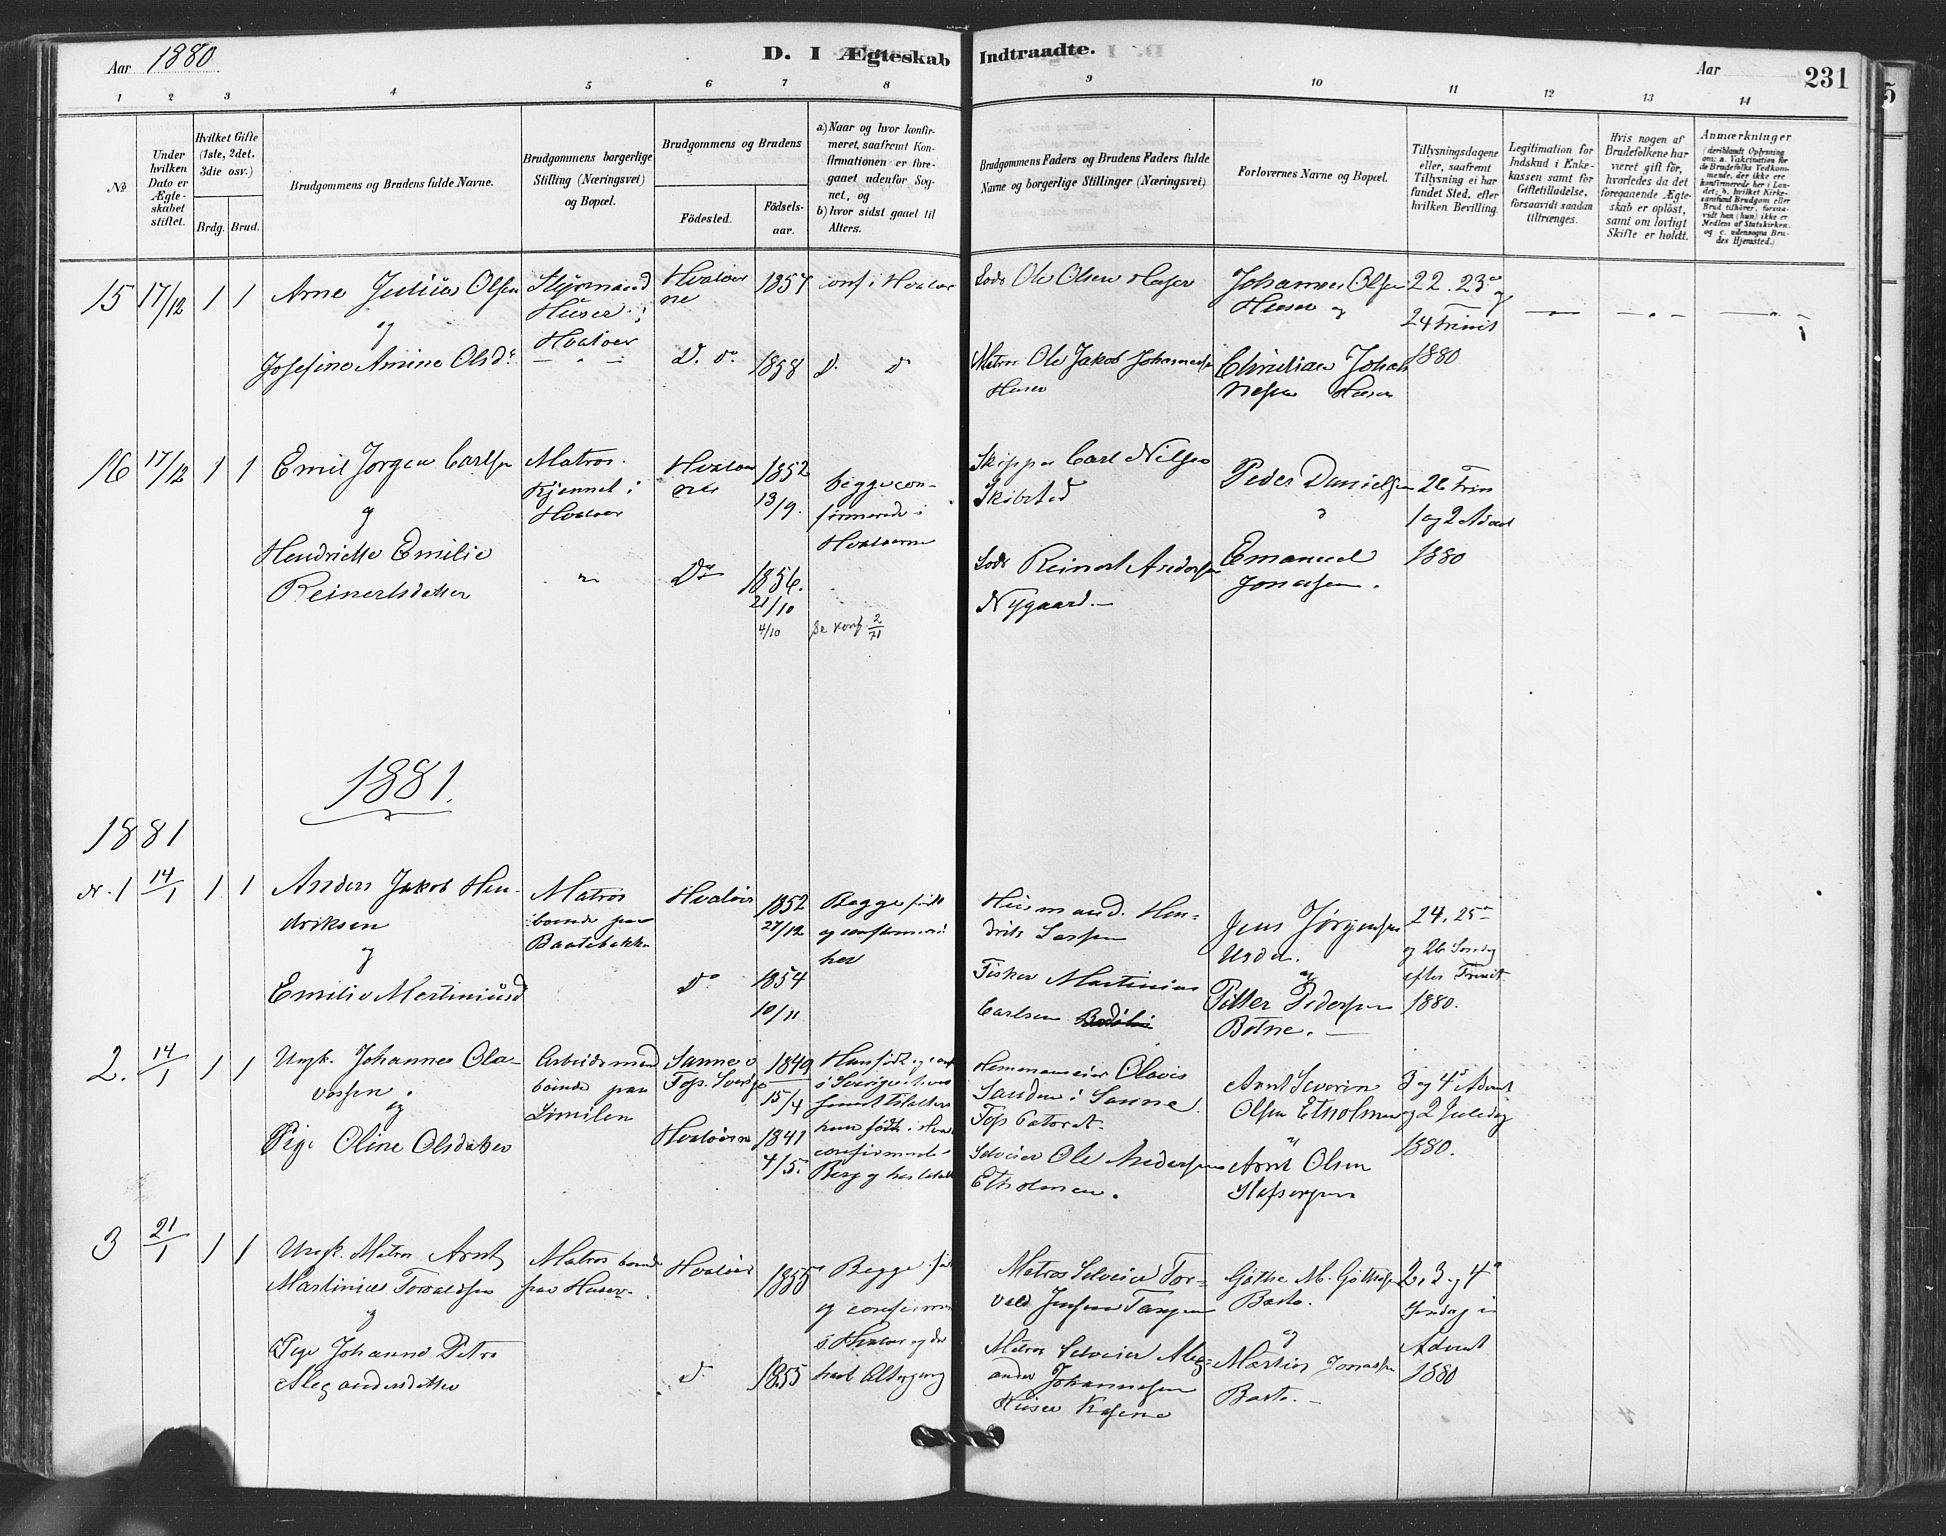 Aar 1880
D. I Ægteskab Indtraadte.
Aar 231
1 2 3 4 5 6 7 8 9 10 11 12 13 14
No
Under hvilken Dato er Ægteskabet stiftet.
Hvilket Gifte (1ste, 2det, 3die osv.)
Brdg. Brud.
Brudgommens og Brudens fulde Navne.
Brudgommens borgerlige Stilling (Næringsvei) og Bopæl.
Brudgommens og Brudens
Fødested.
Fødselsaar.
a) Naar og hvor konfirmeret, saafremt Konfirmationen er foregaaet udenfor Sognet, og
b) hvor sidst gaaet til Alters.
Brudgommens Faders og Brudens Faders fulde Navne og borgerlige Stillinger (Næringsvei)
Forlovernes Navne og Bopæl.
Tillysningsdagene eller, saafremt Tillysning ei har fundet Sted, efter hvilken Bevilling.
Legitimation for Indskud i Enkekassen samt for Giftetilladelse, forsaavidt saadan tiltrænges.
Hvis nogen af Brudefolkene har været gift før, hvorledes da det foregaaende Ægteskab er opløst, samt om lovligt Skifte er holdt.
Anmærkninger
(deriblandt Oplysning om: a. Vakcination for de Brudefolks Vedkommende, der ikke ere konfirmerede her i Landet; b. hvilket Kirkesamfund Brudgom eller Brud tilhører, forsaavidt han (hun) ikke er Medlem af Statskirken, og c. udensogns Brudes Hjemsted.)
15 17/12 1 1
Arne Julius Olsen
og
Josefine Amine Olsd.
Styrmand
Huser i
Hvaløer
Hvaløerne
D. do
1857
1858
conf. i Hvaløer
D. D
Lods Ole Olsen Huser
Matros Ole Jakob Johannessen
Huser
Johannes Olsen
Huser og
Christian Johannesen Huser
22. 23 og
24 Trinit
1880
16 17/12 1 1
Emil Jørgen Carlsen
og
Hendriette Emilie
Reinertsdatter
Matros.
Kjennet i
Hvaløer
Hvaløerne
Do
1852
13/9.
1856.
21/10
4/10
begge confirmerede i
Hvaløerne
se konf. 2/71
Skipper Carl Nilsen
Skibsted
Lods Reinert Andersen
Nygaard.
Peder Danielsen
Emanuel
Jonassen.
26 Trin
1 og 2 Advent
1880
1881.
1881
N. 1 14/1 1 1
Anders Jakob Hendriksen
og
Emilie Martiniusd
Matros
boende paa
Baatebakke
Hvaløer
Do
1852
27/12
1854
10/11
Begge født
og confirmeret
her
Husmand. Hendrik Larsen
Fisker Martinius
Carlsen
Jens Jørgensen
Urdal.
og
Petter Pedersen
Botne.
24. 25de
og 26 Søndag
efter Trinit
1880.
2. 14/1 1 1
Ungk. Johannes Olavssen.
og
Pige Oline Olsdatter
Arbeidsmand
boende paa
Sanne
Hvaløerne
1849
15/4
1841
4/5.
Hemmanseier Olavis
Sanden i Sanne
Selveier Ole Andersen
Etholmen.
Arnt Severin
Olsen Etholmen
Arnt Olsen
3 og 4de Advent
og 2 Juledag
1880.
3 21/1 1 1
Ungk. Matros Arnt
Martinius Torvaldsen
og
Pige Johanne Petra
Alexandersdatter
Matros boende
paa Huser.
Hvaløer
D.
1855
1855
Begge født
og confirmeret
i Hvaløer og der
havt Altergang
Matros Selveier Torvald Jensen Tangen
Matros Selveier Alexander Johannesen
Huser
Gøthe M. Gøthesen
Basto.
og
Martin Jonassen
Basto.
2, 3 og 4de
Søndag i
Advent
1880